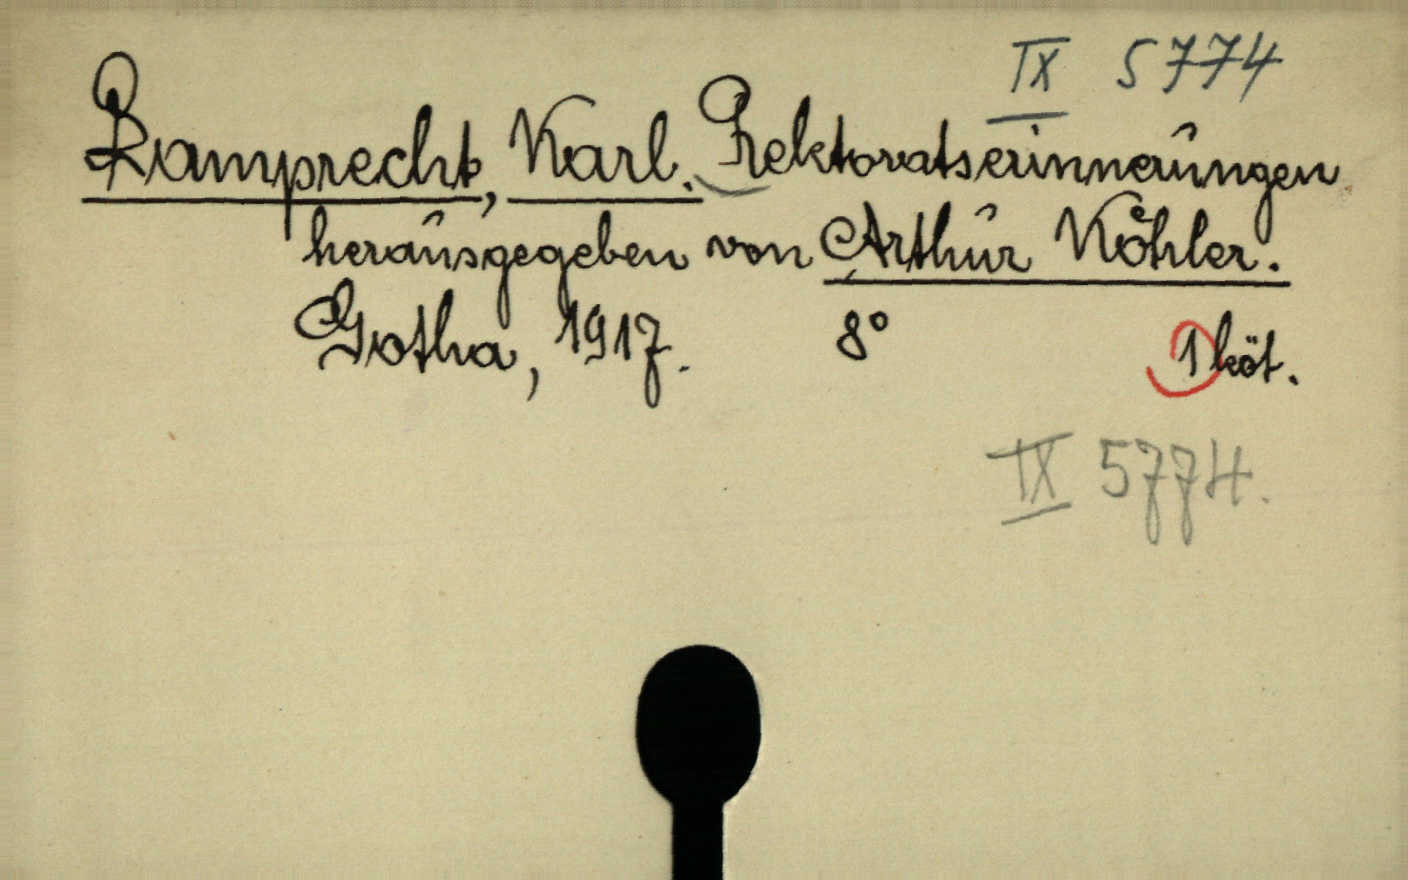 IX 5774
Lamprecht, Karl. Rektoratserinnerungen
herausgegeben von Arthur Köhler.
Gotha, 1917. 8° 1 köt.
IX 5774.